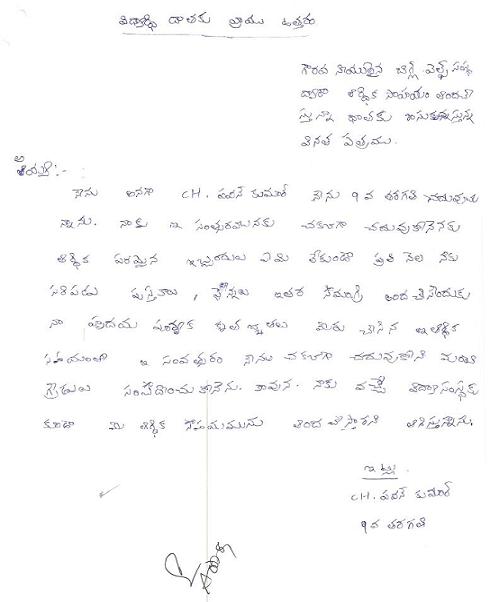 విద్యార్థి దాతకు వ్రాయు ఉత్తరం
గౌరవ నీయులైన చార్లీ వెల్ఫేర్
ద్వారా ఆర్థిక సాహాయం అందచే
స్తున్న దాతకు వ్రాసుకుంటున్న
వినతి పత్రము.
అయ్యా:-
నేను అనగా CH. పవన్ కుమార్ నేను 9వ తరగతి చదువుచు
న్నాను. నాకు ఇ సంత్సరమునకు చక్కగా చదువుతానెనకు
ఆర్థిక పరమైన ఇబ్బందులు ఏమి లేకుండా ప్రతి నెల నేకు
సరిపడు పుస్తకాలు, పెన్నులు ఇతర సేమగ్రి అంద చేసెందుకు
నా హృదయ పూర్వక కృత జ్ఞతలు మీరు చేసిన ఇ ఆర్థిక
సహాయంతో ఇ సంవత్సరం నేను చక్కగా చదువుకొని మంచి
గ్రేడులు సంపాదించు తానెను. కావున. నాకు వచ్చే విద్యాసంవత్సరం
కూడా మి ఆర్థిక సహయమును అంద చేస్తారని ఆశిస్తున్నాను.
ఇట్లు
CH. పవన్ కుమార్
9వ తరగతి